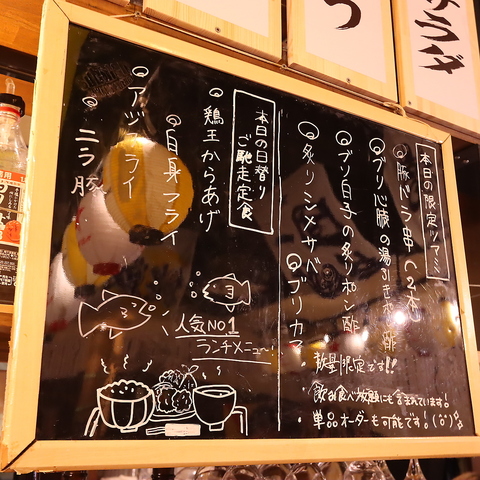 サラダ
つ
本日の限定リアミ
豚ドラ串(2本)
ブリ心臓の湯引きポン酢
ブリ白子の炙りポン酢
炙りシメサバ
ブリカマ
・数量限定です!!
・飲み食べ放題にも含まれています!
・単品オーダーも可能です!(^o^)
本日の日替り
ご馳走定食
鶏王からあげ
白身フライ
アジフライ
ニラ豚
人気NO1
ランチメニュー